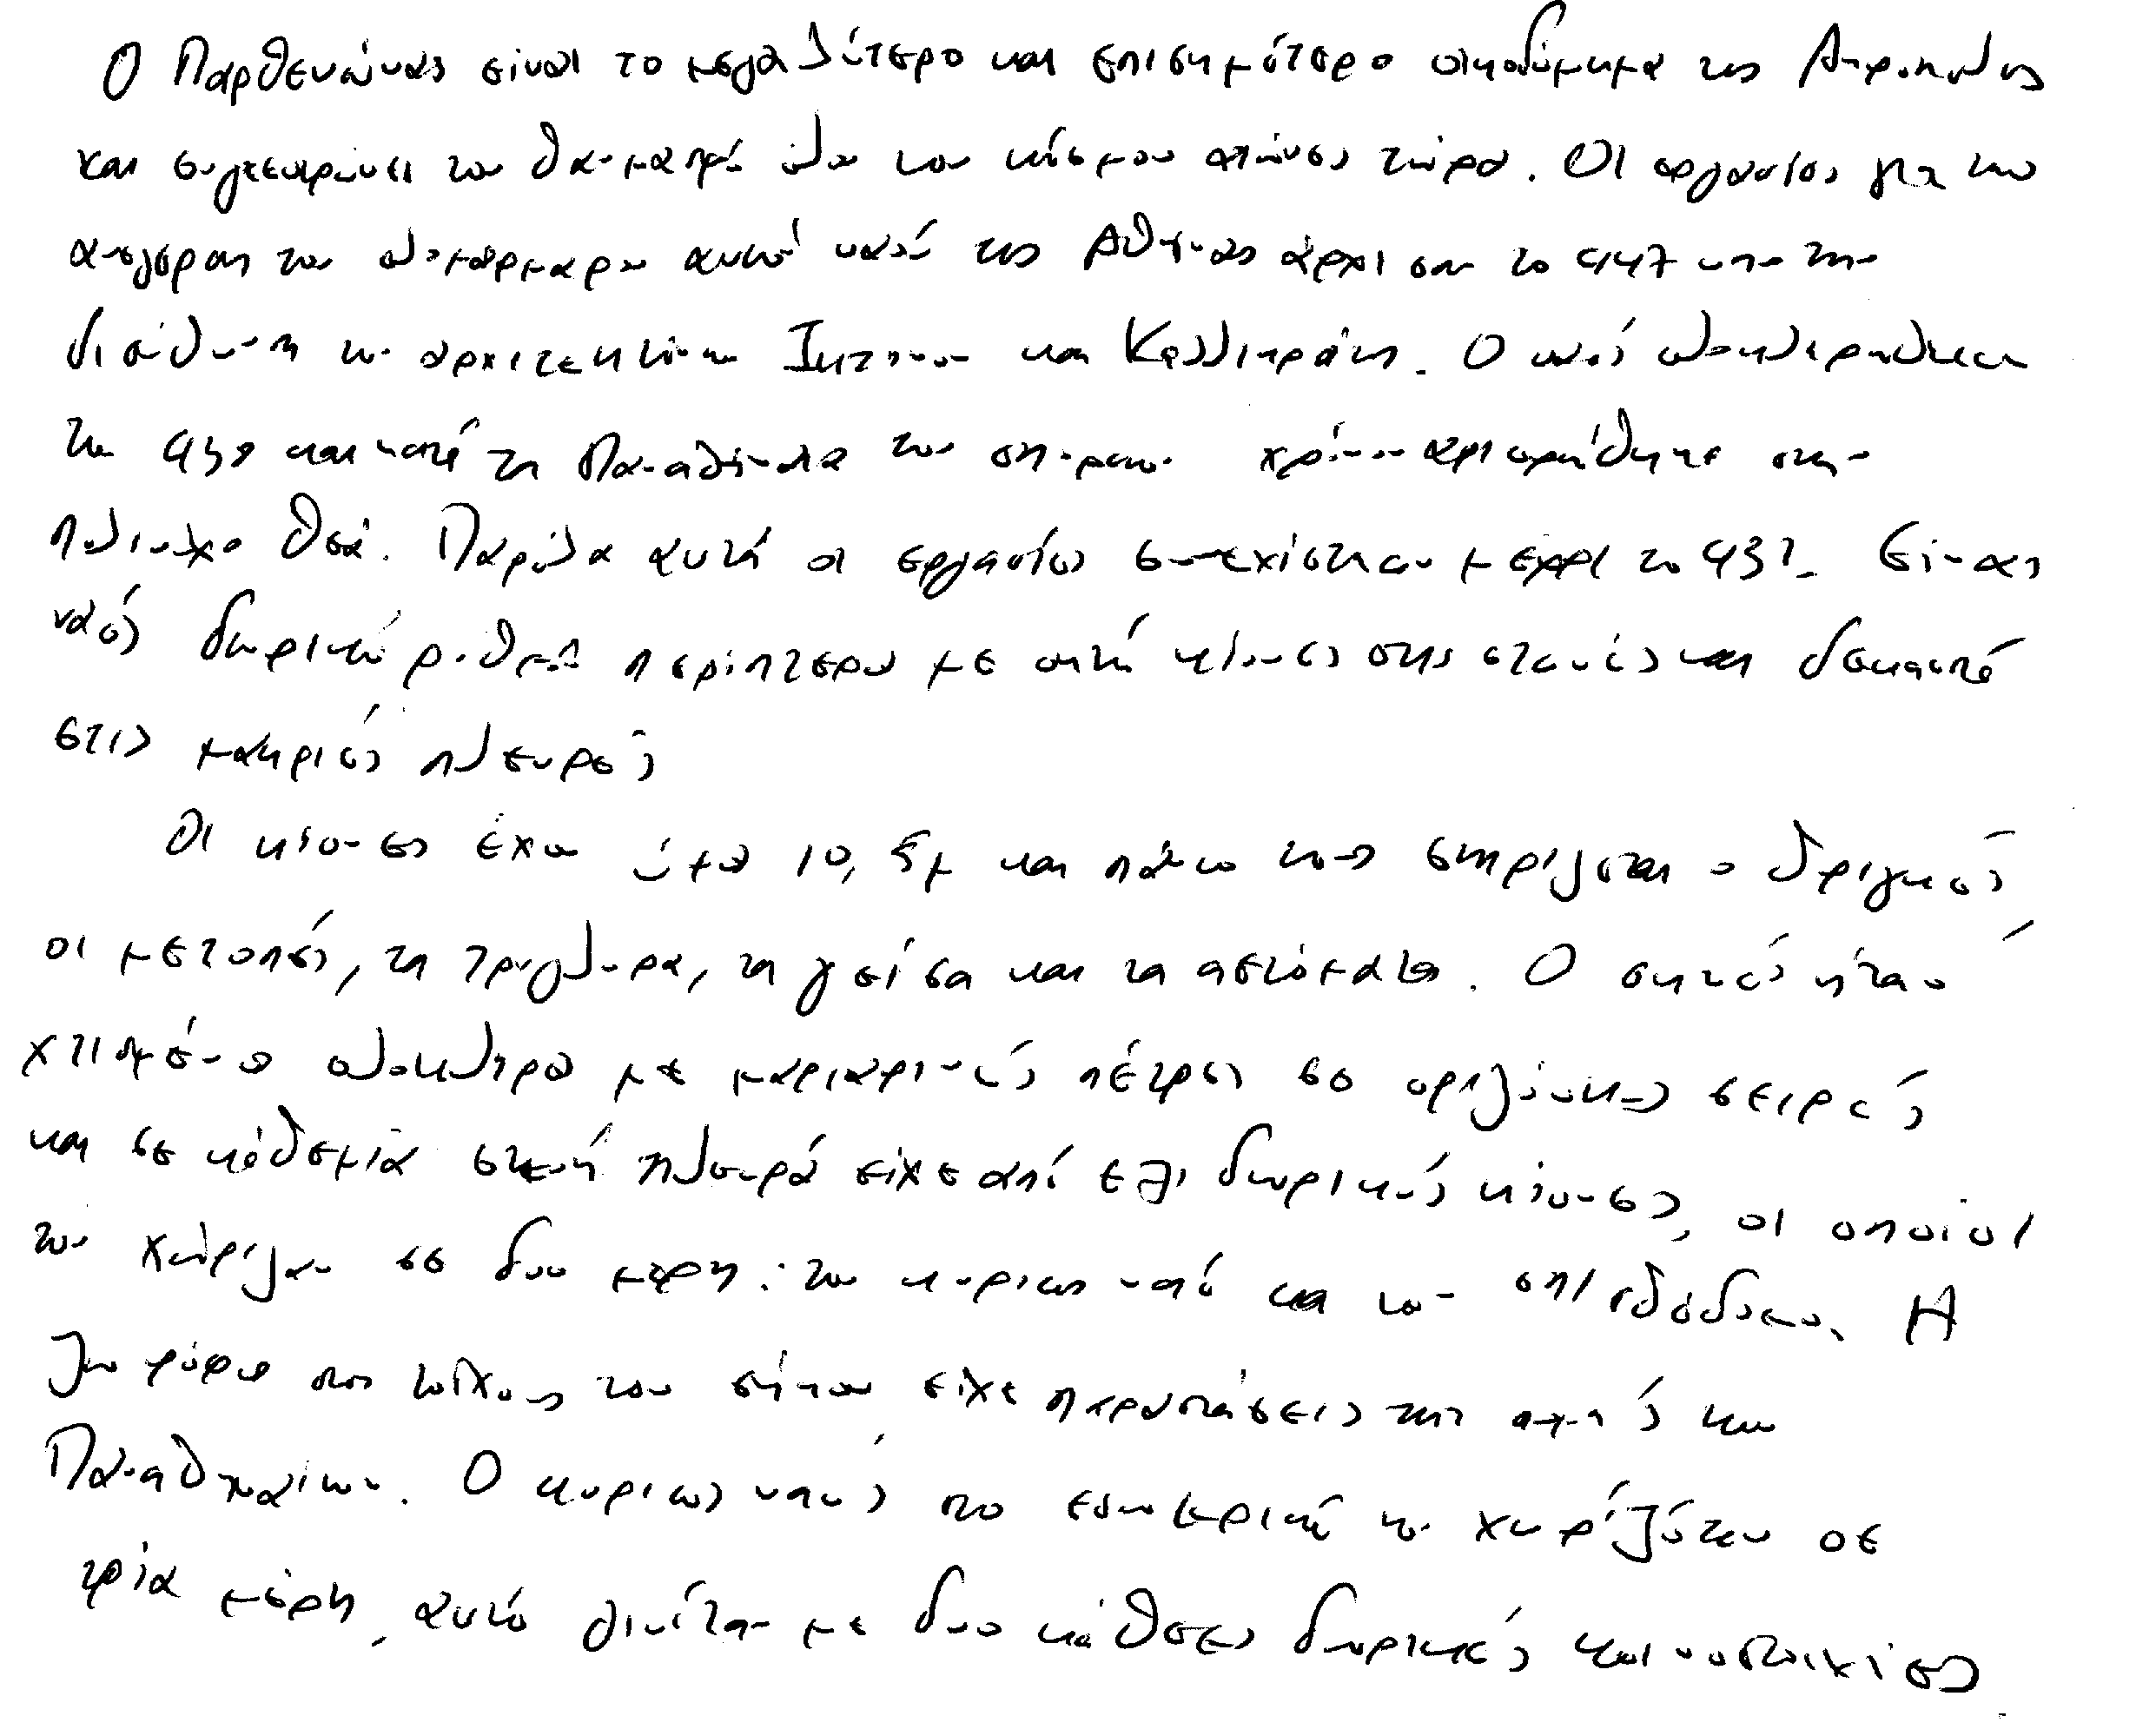 Ο Παρθενώνας είναι το μεγαλύτερο και επισημότερο οικοδόμημα της Ακρόπολης
και συγκεντρώνει τον θαυμασμό όλου του κόσμου αιώνες τώρα. Οι εργασίες για την
ανέγερση του ολομάρμαρου αυτού ναού της Αθηνάς άρχισαν το 447 υπο την
διεύθυνση των αρχιτεκτόνων Ικτινου και Καλλικράτη. Ο ναός ολοκληρώθηκε
το 438 και κατά τα Παναθήναια του επόμενου χρόνου αφιερώθηκε στην
πολιούχο θεά. Παρόλα αυτά οι εργασίες συνεχίστηκαν μεχρι το 432. Είναι
ναός δωρικού ρυθμού περίπτερου με οκτώ κίονες στις στενές και δεκαεπτά
στις μακριές πλευρές
Οι κίονες έχουν ύψο 10,5μ και πάνω τους στηρίζεται ο θριγκός,
οι μετοπές, τα τρίγλυφα, τα γείσα και τα αετώματα. Ο σηκός ήταν
χτισμένο ολοκληρο με μαρμαρινές πέτρες σε οριζόντιες σειρές
και σε κάθεμία στενή πλευρά είχε από εξι δωρικούς κίονες, οι οποίοι
τον χώριζαν σε δυο μερη: τον κυριως ναό και τον οπισθόδομο. Η
ζωφόρο στους τοίχους του σηκού είχε παραστάσεις την πομπή των
Παναθηναίων. Ο κυριως ναός στο εσωτερικό του χωρίζόταν σε
τρία μέρη, αυτό γινόταν με δυο κάθετες δωρικές κιονοστοιχίες